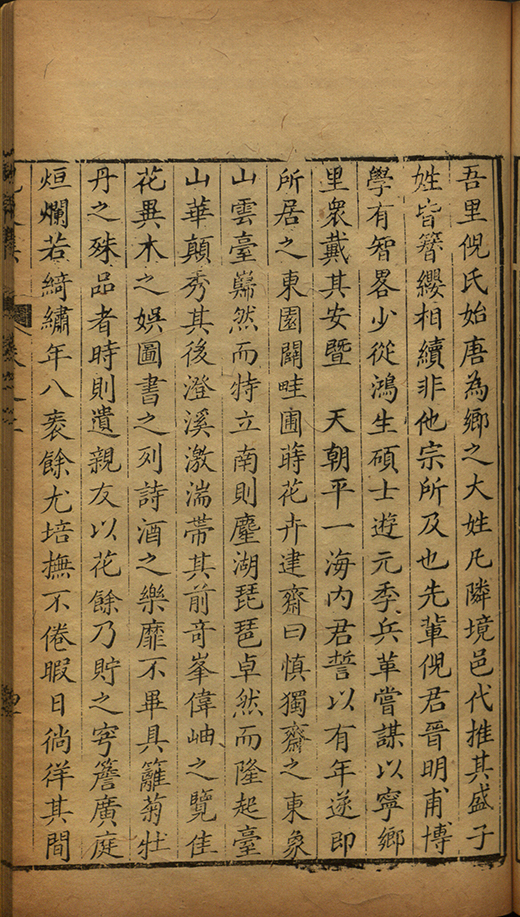 吾里倪氏始唐為鄉之大姓凡隣境邑代推其盛子
姓皆簪纓相續非他宗所及也先輩倪君晉明甫博
學有智畧少從鴻生碩士遊元季兵革嘗謀以寧鄉
里衆戴其安曁　天朝平一海内君誓以有年遂即
所居之東園闢畦圃蒔花卉建齋曰慎獨齋之東象
山雲臺巋然而特立南則麈湖琵琶卓然而隆起臺
山華顛秀其後澄溪激湍帶其前竒峯偉岫之覽佳
花異木之娛圖書之列詩酒之樂靡不畢具籬菊牡
丹之殊品者時則遺親友以花餘乃貯之穹簷廣庭
烜爛若綺繡年八袠餘尤培撫不倦暇日徜徉其間